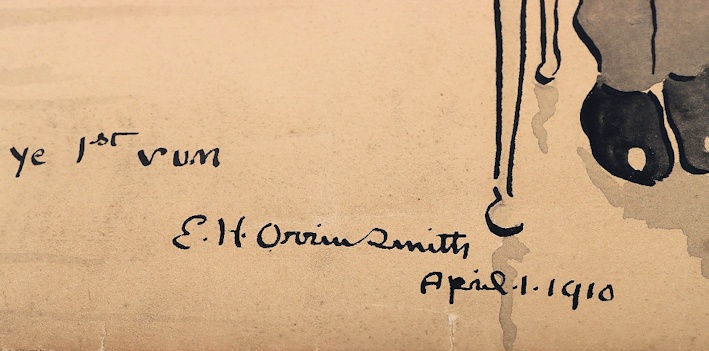 ye 1st run
E. H. Orrin Smith
April. 1. 1910